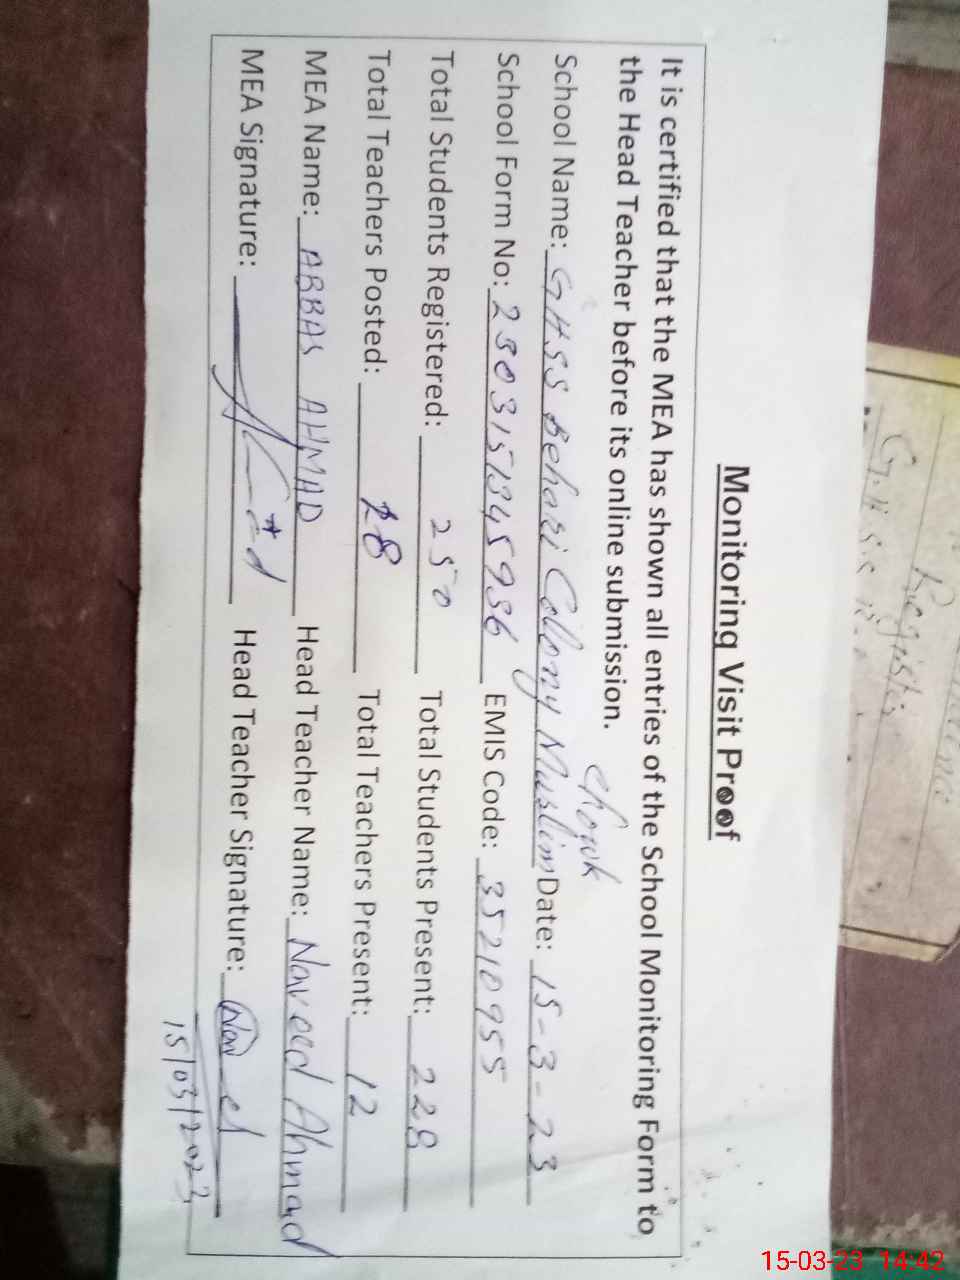 Monitoring Visit Proof
It is certified that the MEA has shown all entries of the School Monitoring Form to
the Head Teacher before its online submission.
Chowk
School Name: GHSS Behari Colony Muslim Date: 15-3-23
School Form No: 2303151345936 EMIS Code: 35210955
Total Students Registered: 250 Total Students Present: 228
Total Teachers Posted: 18 Total Teachers Present: 12
MEA Name: ABBAS AHMAD Head Teacher Name: Naveed Ahmad
MEA Signature: Head Teacher Signature:
15/03/2023
Register
15-03-23 14:42